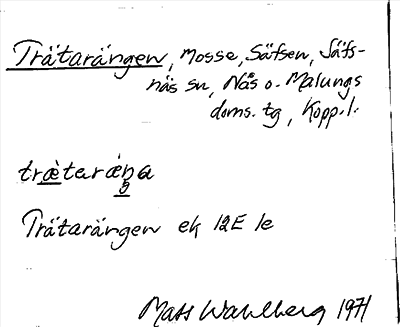 Trätarängen, mosse, Säfsen, Säfs-
näs sn, Nås o. Malungs
doms. tg, Kopp. l.
træ̀taræ̀ŋa
Trätarängen ek 12E 1e
Mats Wahlberg 1971